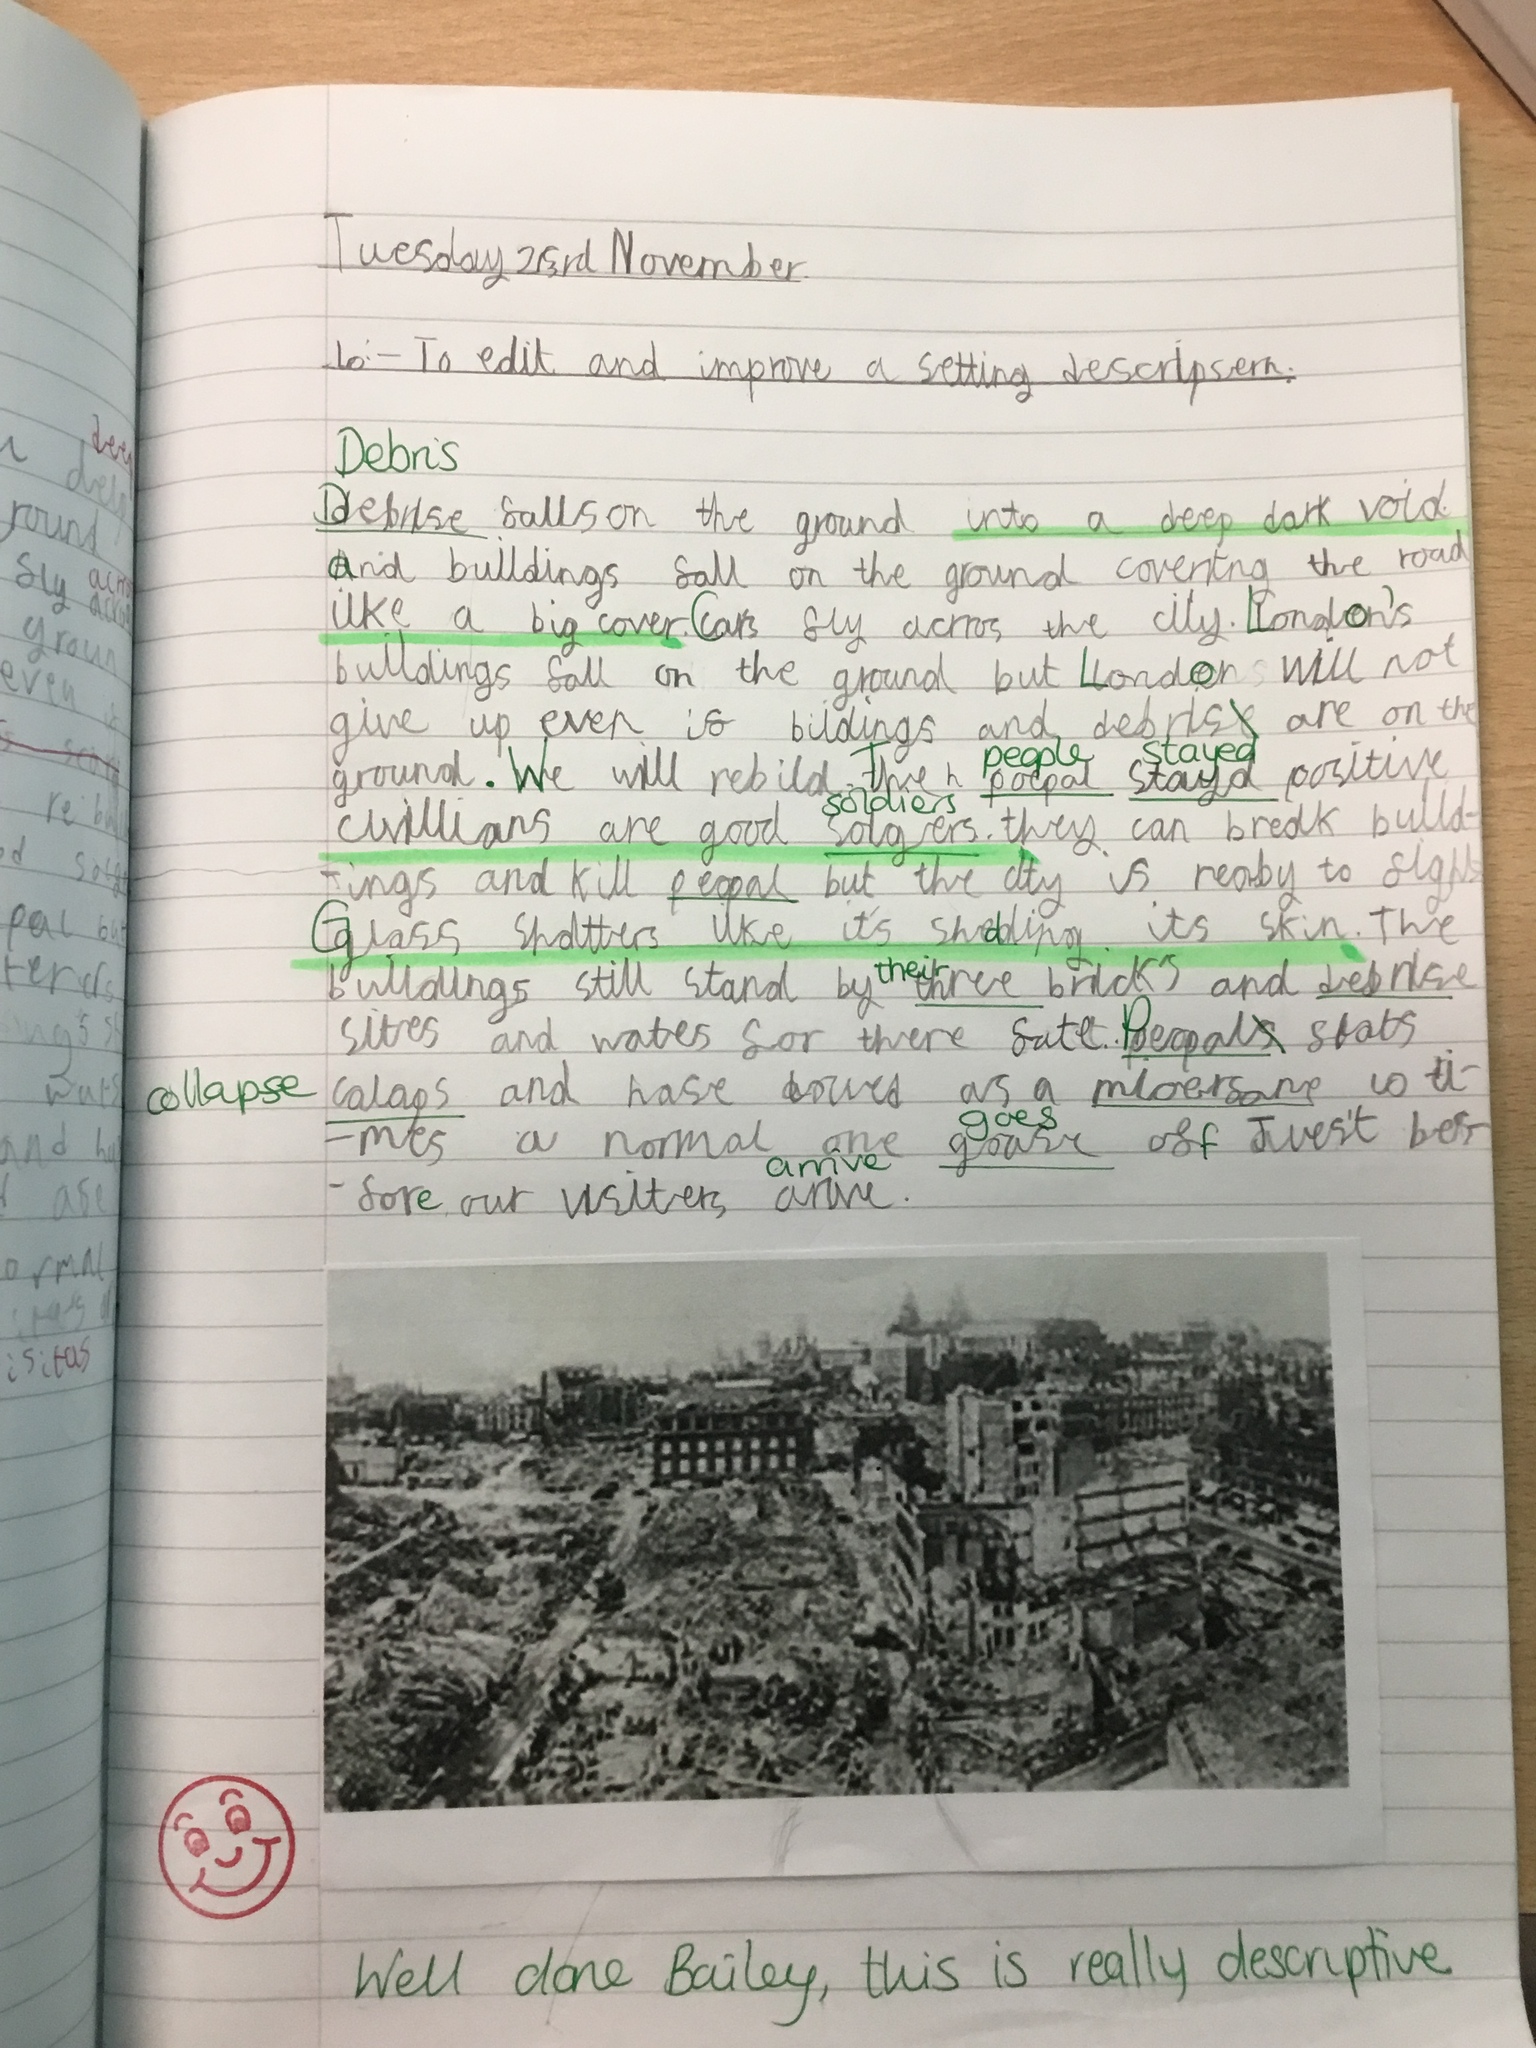 Tuesday 23rd November
Lo:- To edit and improve a setting descripsern.
Debris
Debrise falls on the ground into a deep dark void
and buildings fall on the ground covering the road
like a big cover. Cars fly acrros the city. London's
buildings fall on the ground but London will not
give up even if bildings and debris are on the
ground. We will rebild. The people stayed
poepal stayd positive
soldiers
civillians are good solgiers. they can break build-
-ings and kill pepal but the city is reaby to fight
Glass shatters like it's shedding its skin. The
buildings still stand by their three brick's and debrise
sites and wates for there fate. Peopal stats
collapse calaps and have bowed as a mloersane 10 ti-
-mes a normal one goes goase off Juest bef-
-fore our visiters arrive arive.
Well done Bailey, this is really descriptive
deep
round
fly acros
acros
groun
even if
pal but
and ha
ormal
isitas